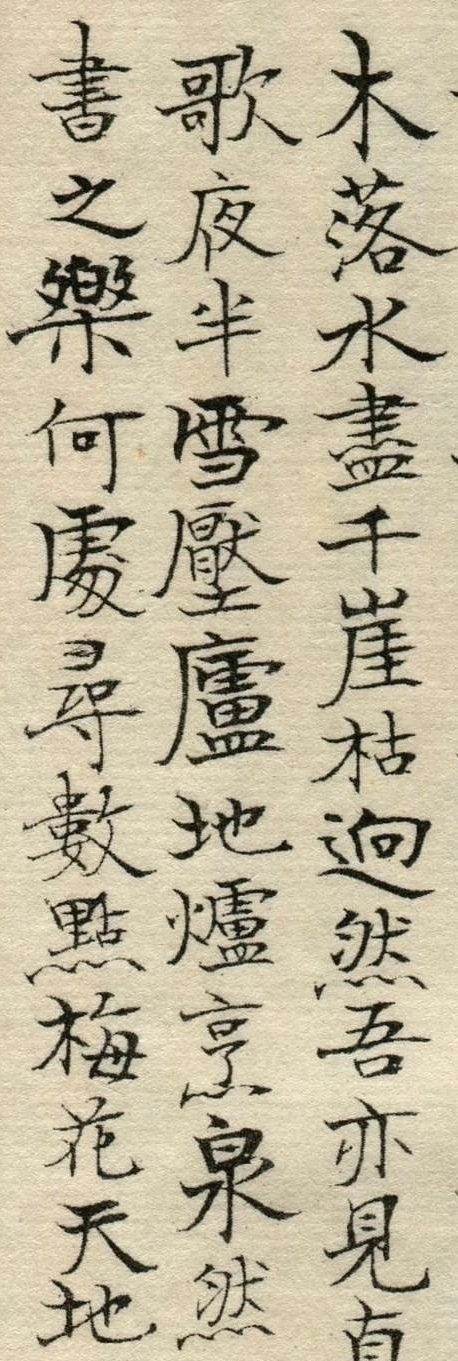 木落水盡千崖枯迥然吾亦見真
歌夜半雪壓廬地爐烹泉然
書之樂何處尋數點梅花天地